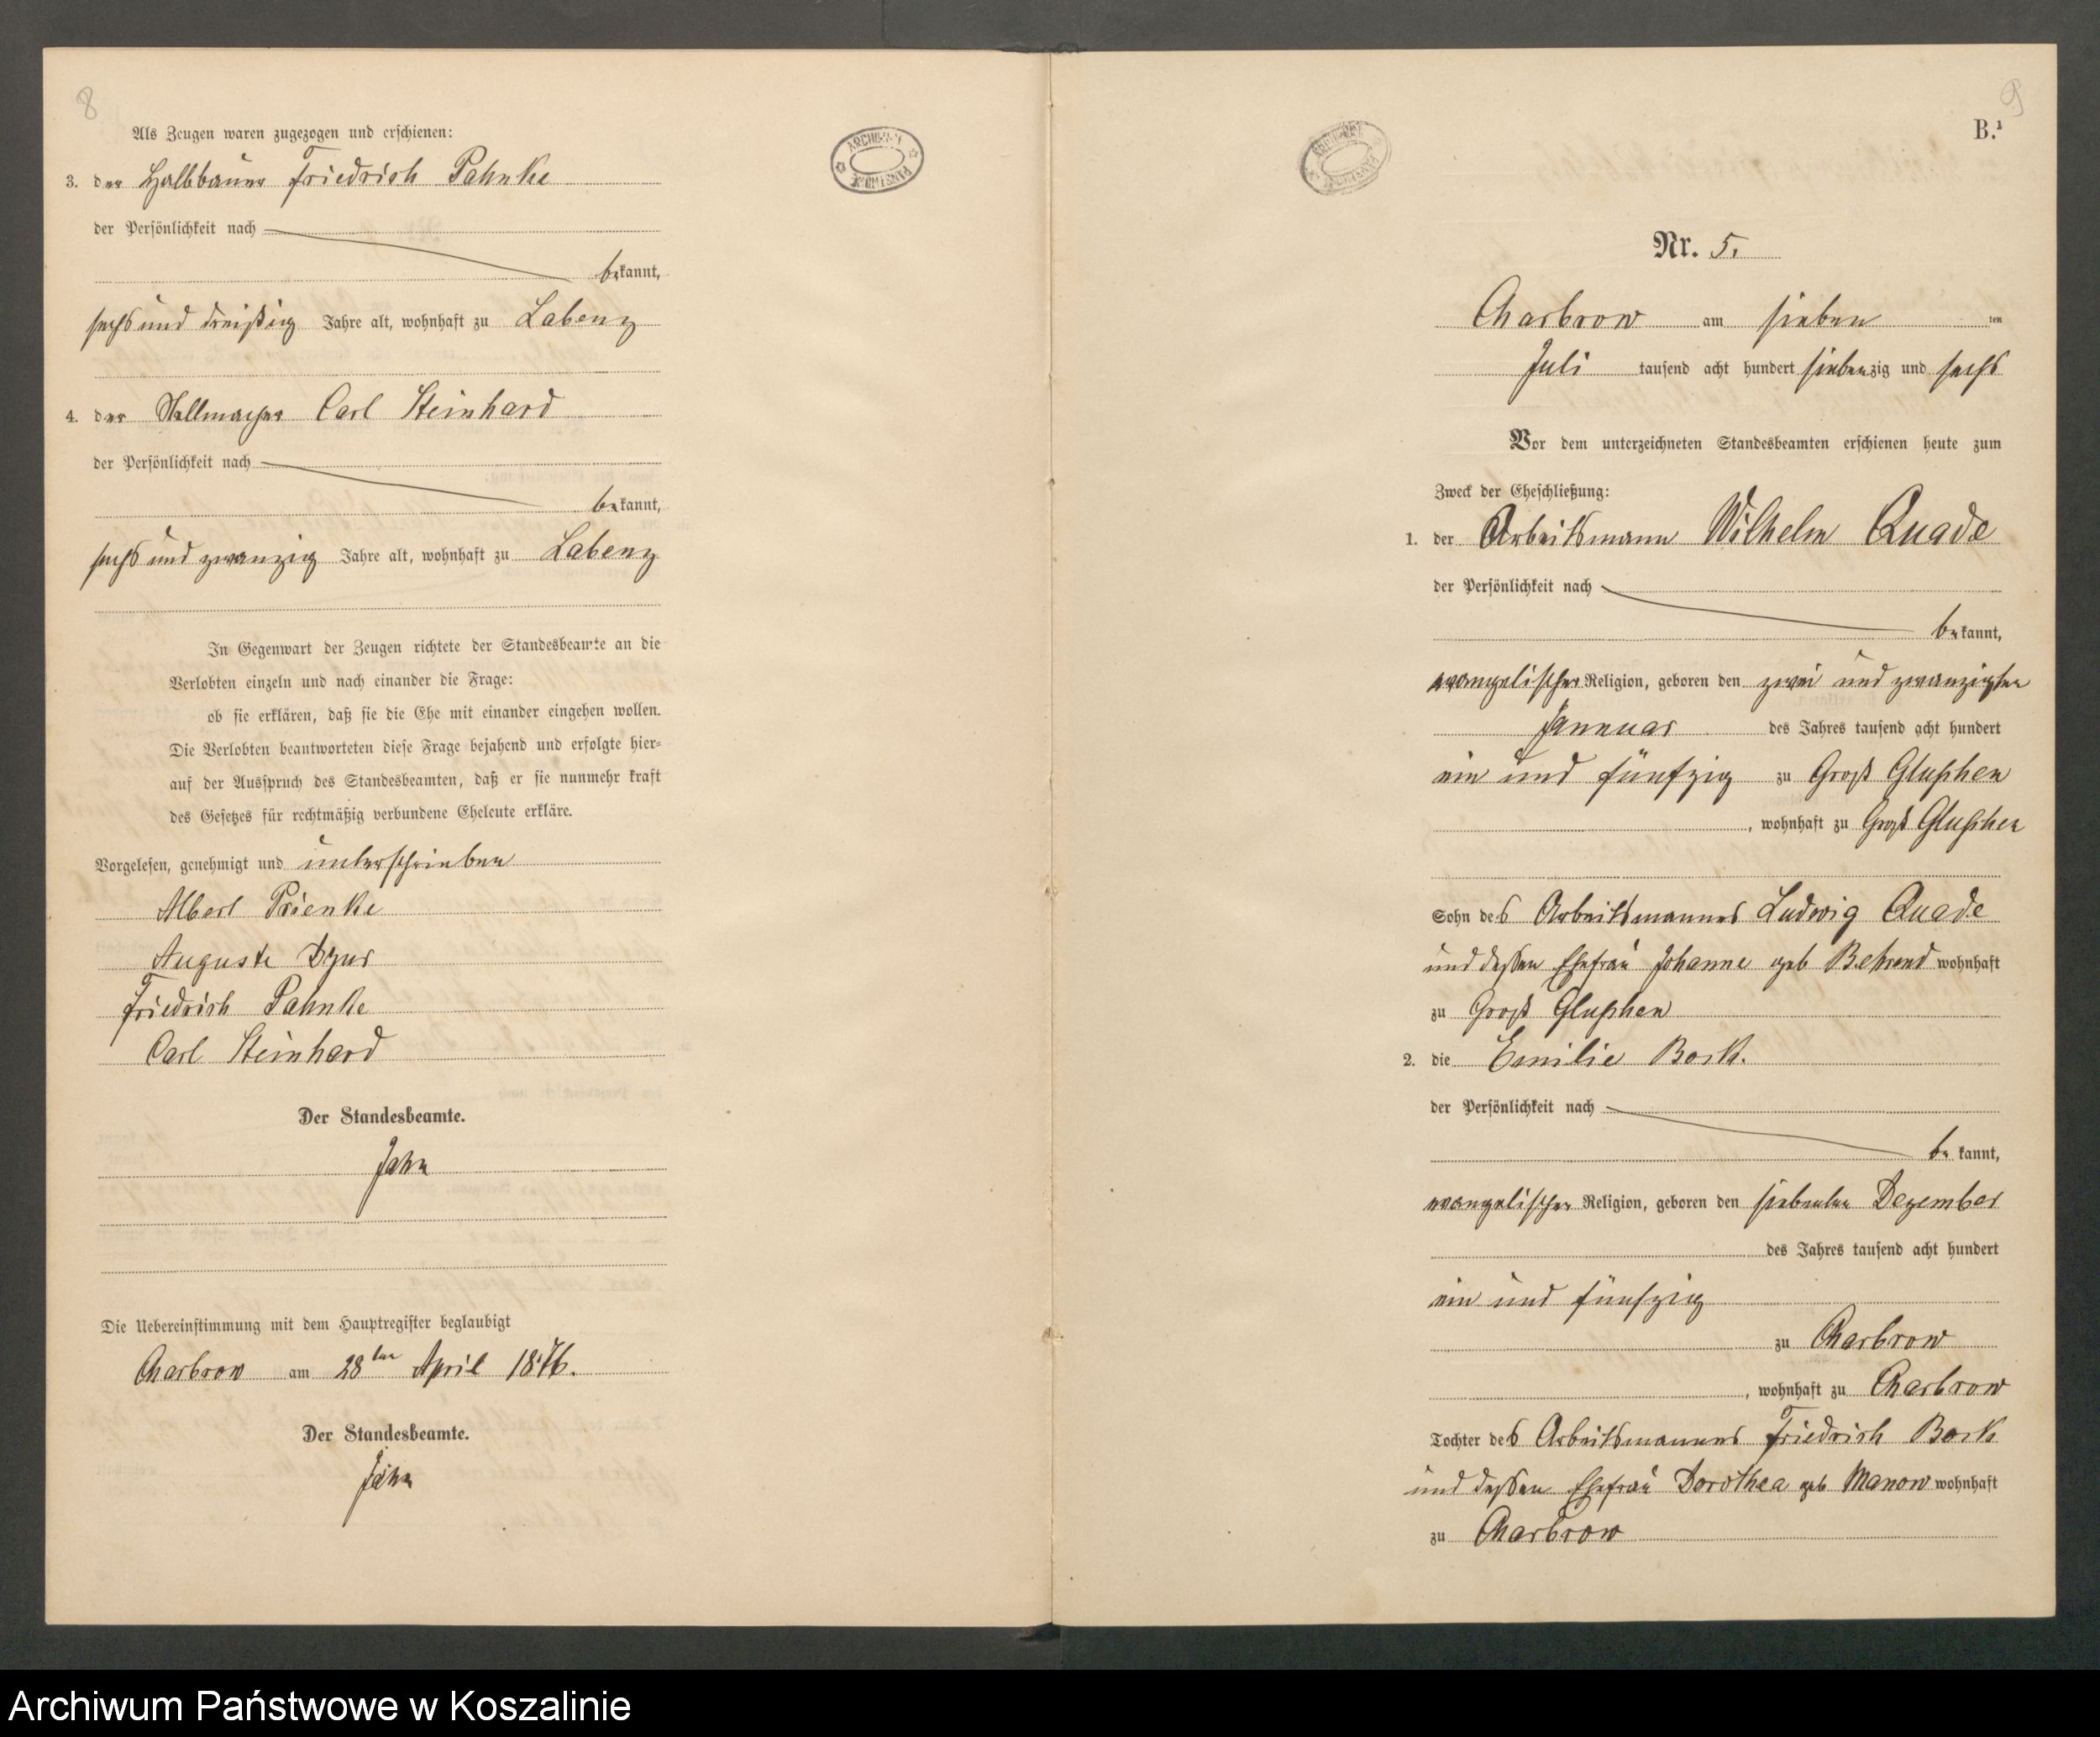 8
Als Zeugen waren zugezogen und erschienen:
3. der Halbbauer Friedrich Pahnke
der Persönlichkeit nach
bekannt,
sechs und dreißig Jahre alt, wohnhaft zu Labenz
4. der Stellmacher Carl Steinhard
der Persönlichkeit nach
bekannt,
sechs und zwanzig Jahre alt, wohnhaft zu Labenz
In Gegenwart der Zeugen richtete der Standesbeamte an die
Verlobten einzeln und nach einander die Frage:
ob sie erklären, daß sie die Ehe mit einander eingehen wollen.
Die Verlobten beantworteten diese Frage bejahend und erfolgte hier-
auf der Ausspruch des Standesbeamten, daß er sie nunmehr kraft
des Gesetzes für rechtmäßig verbundene Eheleute erkläre.
Vorgelesen, genehmigt und unterschrieben
Albert Prienke
Auguste
Friedrich Pahnke
Carl Steinhard
Der Standesbeamte.
Jahn
Die Uebereinstimmung mit dem Hauptregister beglaubigt
Charbrow am 28ten April 1876.
Der Standesbeamte.
Jahn
ARCHIWUM PAŃSTWOWE
9
B.
Nr. 5.
Charbrow am sieben ten
Juli tausend acht hundert siebenzig und sechs
Vor dem unterzeichneten Standesbeamten erschienen heute zum
Zweck der Eheschließung:
1. der Arbeitsmann Wilhelm Quade
der Persönlichkeit nach
bekannt,
evangelischer Religion, geboren den zwei und zwanzigsten
Januar des Jahres tausend acht hundert
ein und fünfzig zu Groß Gluschen
, wohnhaft zu Groß Gluschen
Sohn des Arbeitsmannes Ludwig Quade
und dessen Ehefrau Johanne geb Behrend wohnhaft
zu Groß Gluschen
2. die Emilie Bork.
der Persönlichkeit nach
bekannt,
evangelischer Religion, geboren den siebenten Dezember
des Jahres tausend acht hundert
ein und fünfzig
zu Charbrow
, wohnhaft zu Charbrow
Tochter des Arbeitsmannes Friedrich Bork
und dessen Ehefrau Dorothea geb Manow wohnhaft
zu Charbrow
Archiwum Państwowe w Koszalinie